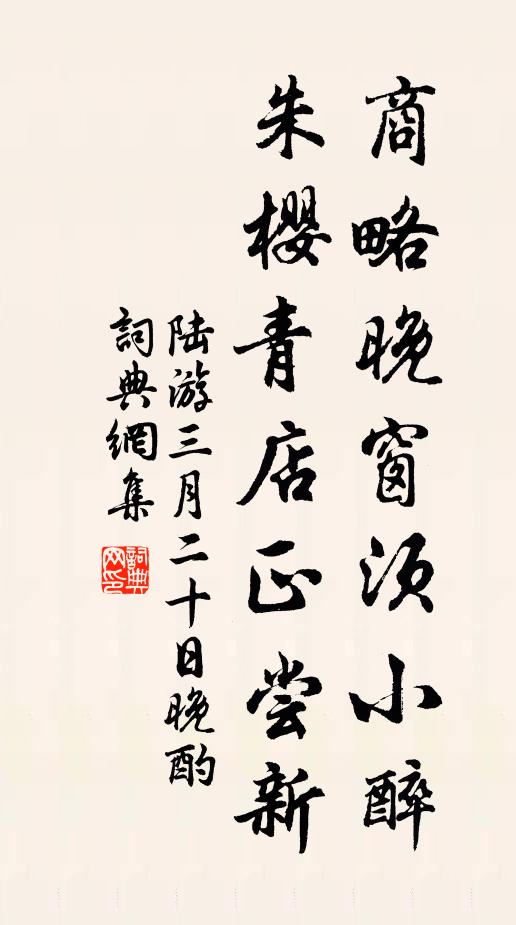 商略晚窗須小醉
朱櫻青店正尝新
陆游三月二十日晚酌
詞典網集
詞典网印